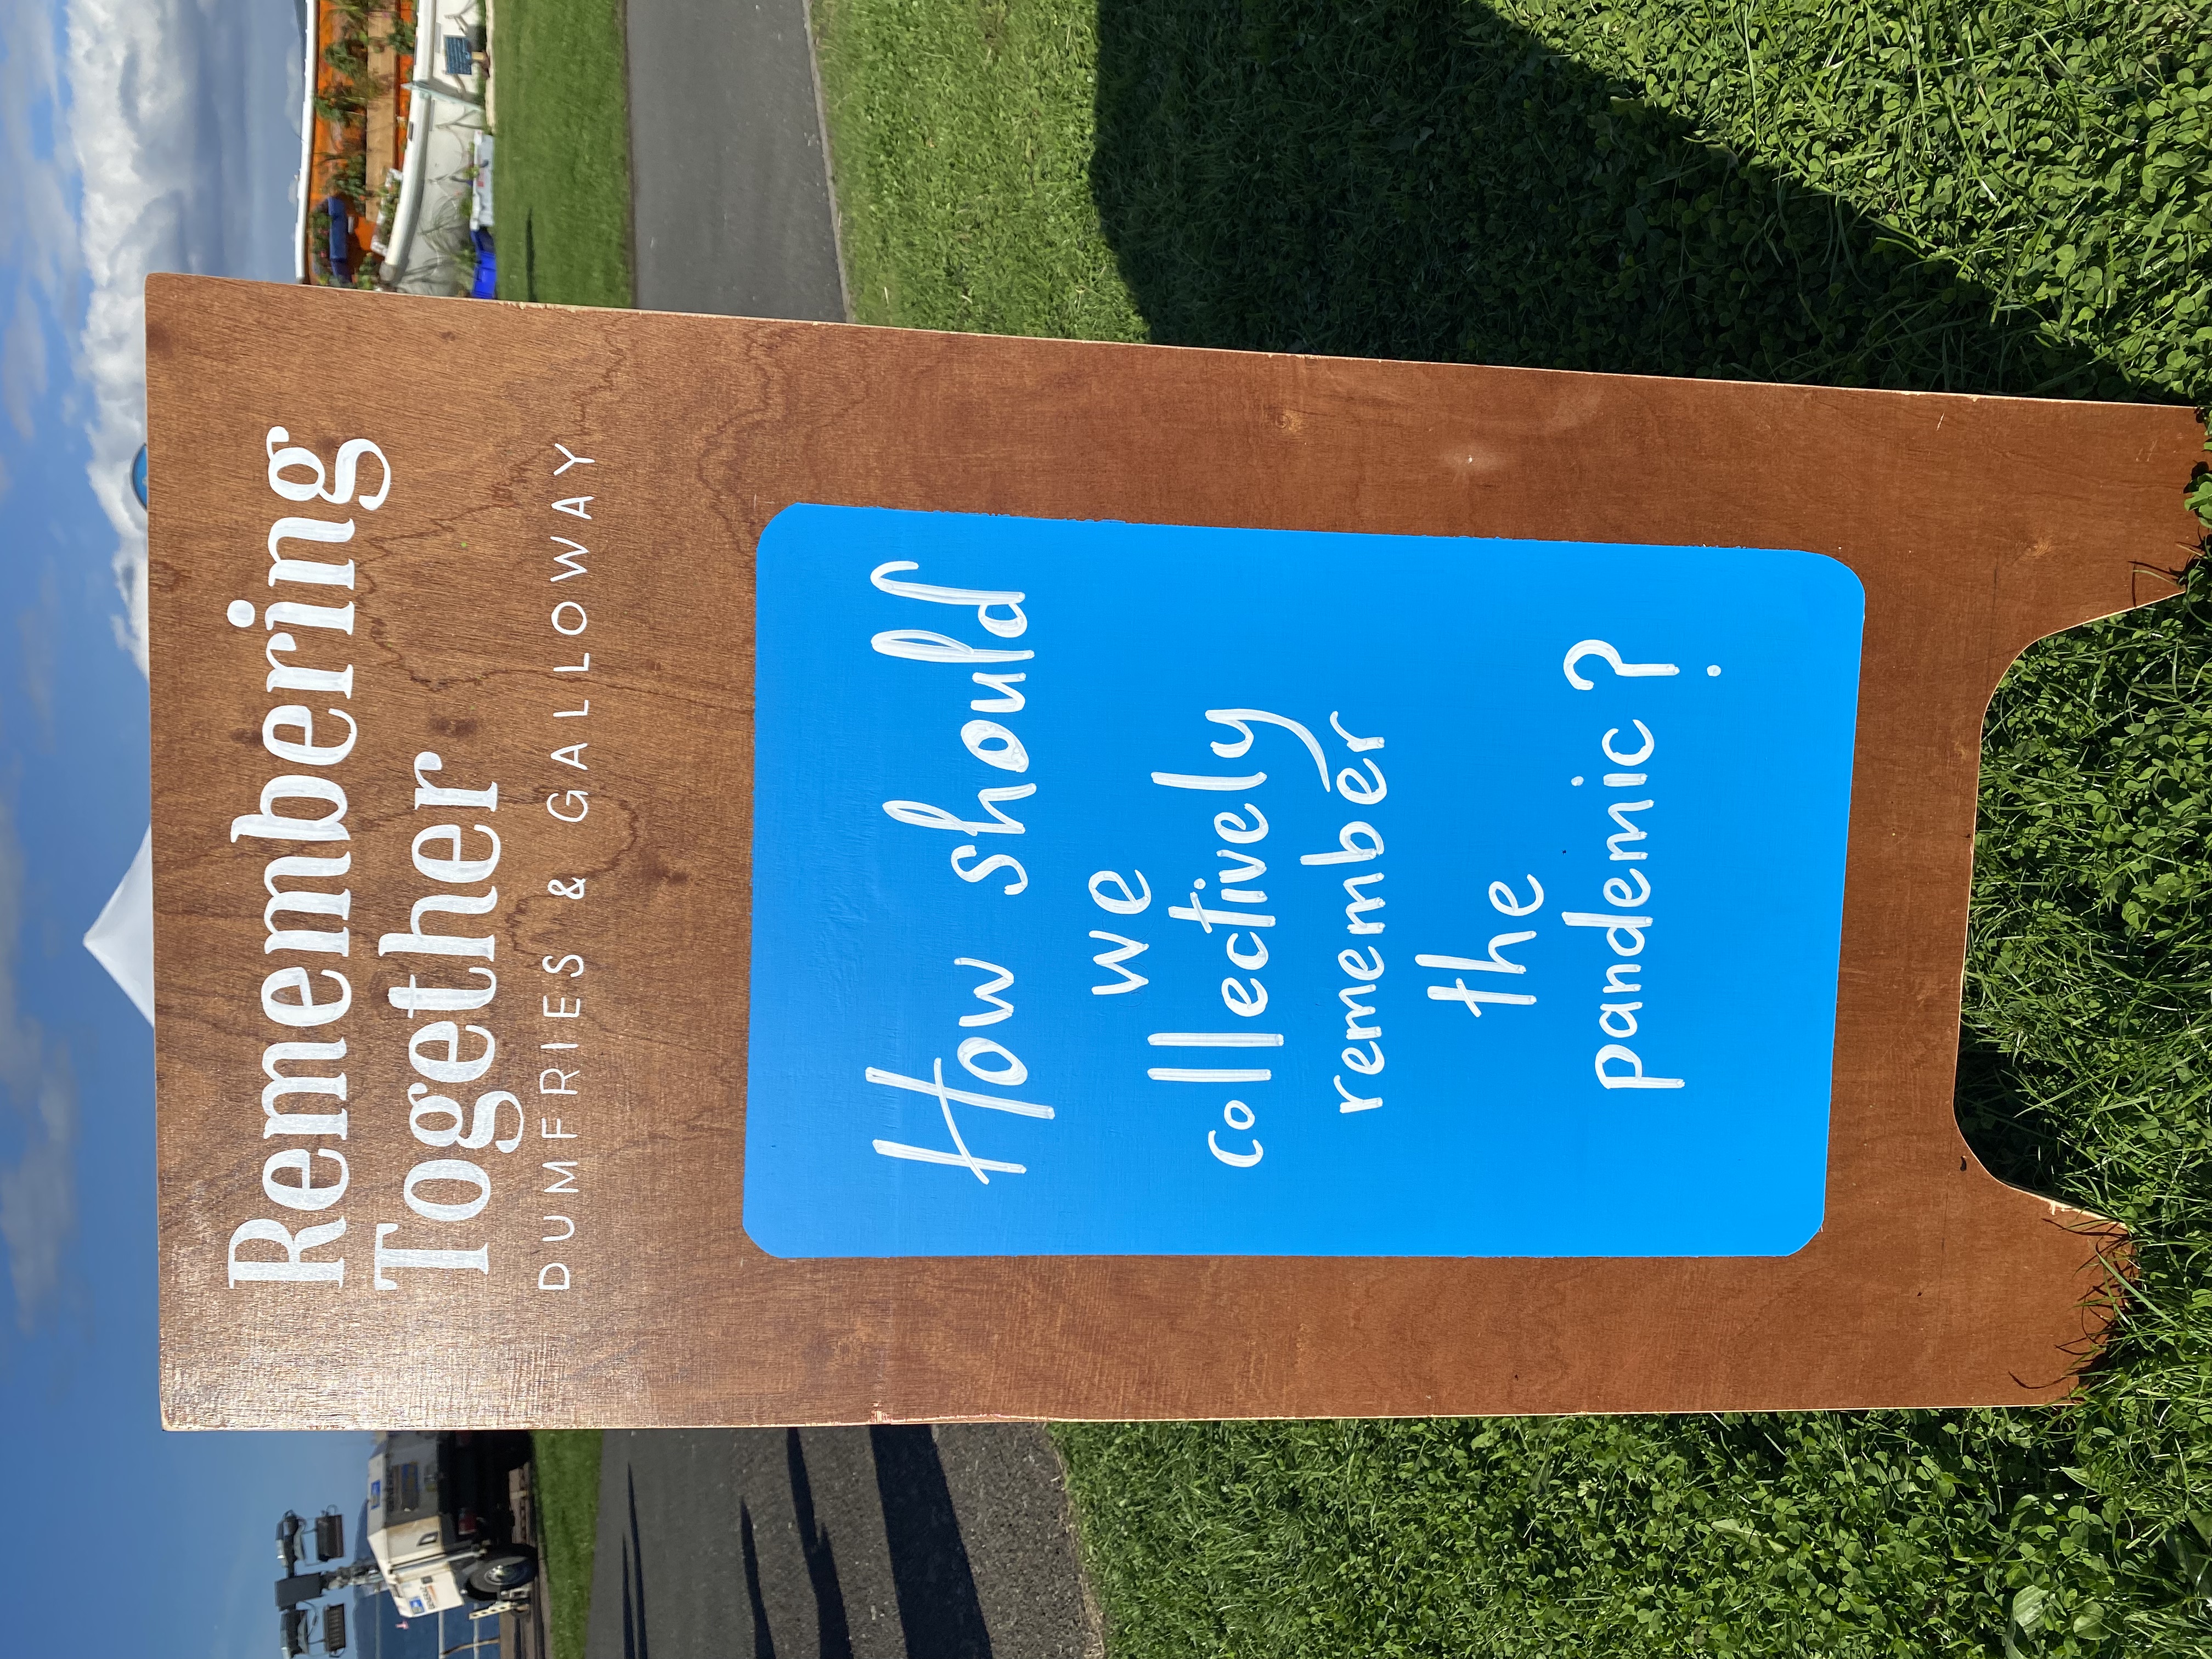 Remembering
Together
DUMFRIES & GALLOWAY
How should
we
collectively
remember
the
pandemic?
GENERAC